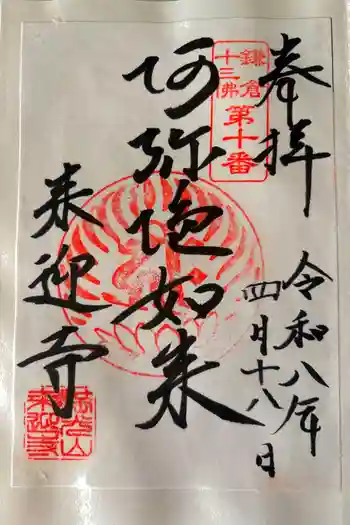 奉拝
令和八年
四月十八日
鎌倉
十三佛
第十番
阿弥陀如来
来迎寺